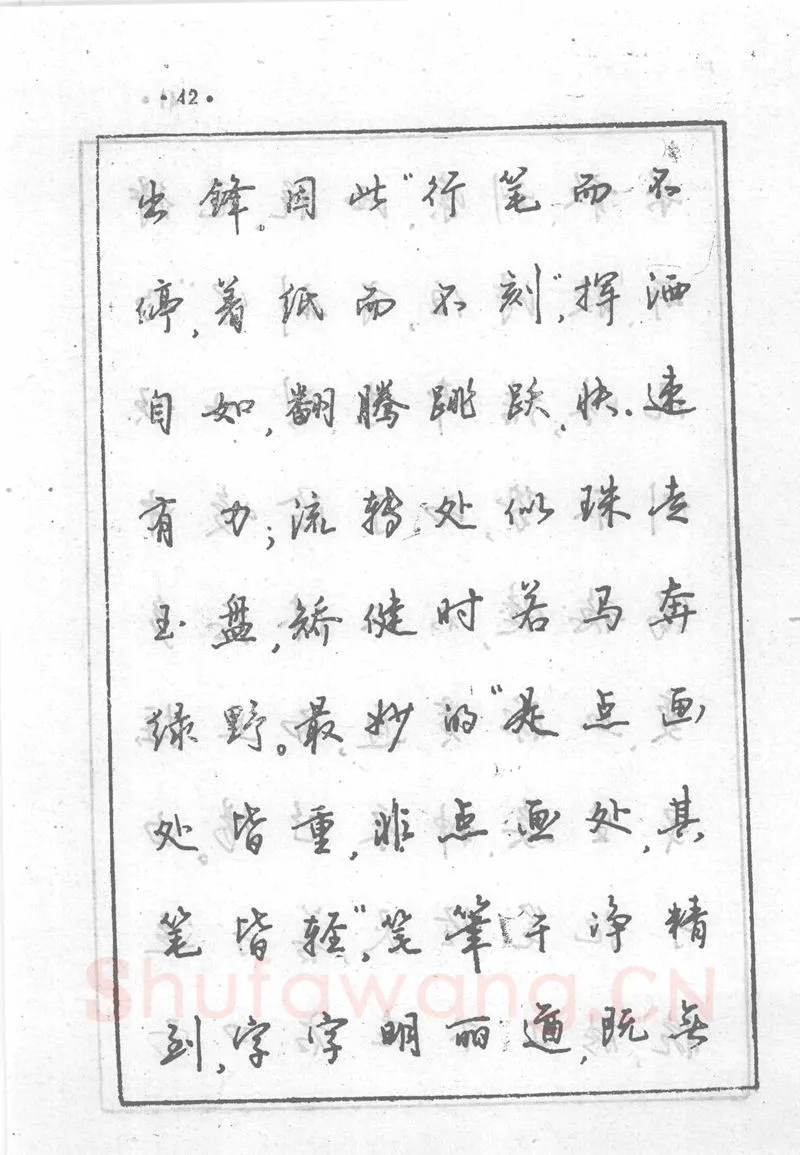 ·42·
出锋。因此“行笔而不
停,着纸而不刻”,挥洒
自如,翻腾跳跃,快速
有力;流转处似珠走
玉盘,矫健时若马奔
绿野。最妙的“是点画
处。皆重,非点画处,其
笔皆轻”,笔筆干净精
到,字字明丽遒,既无
Shufawang.CN